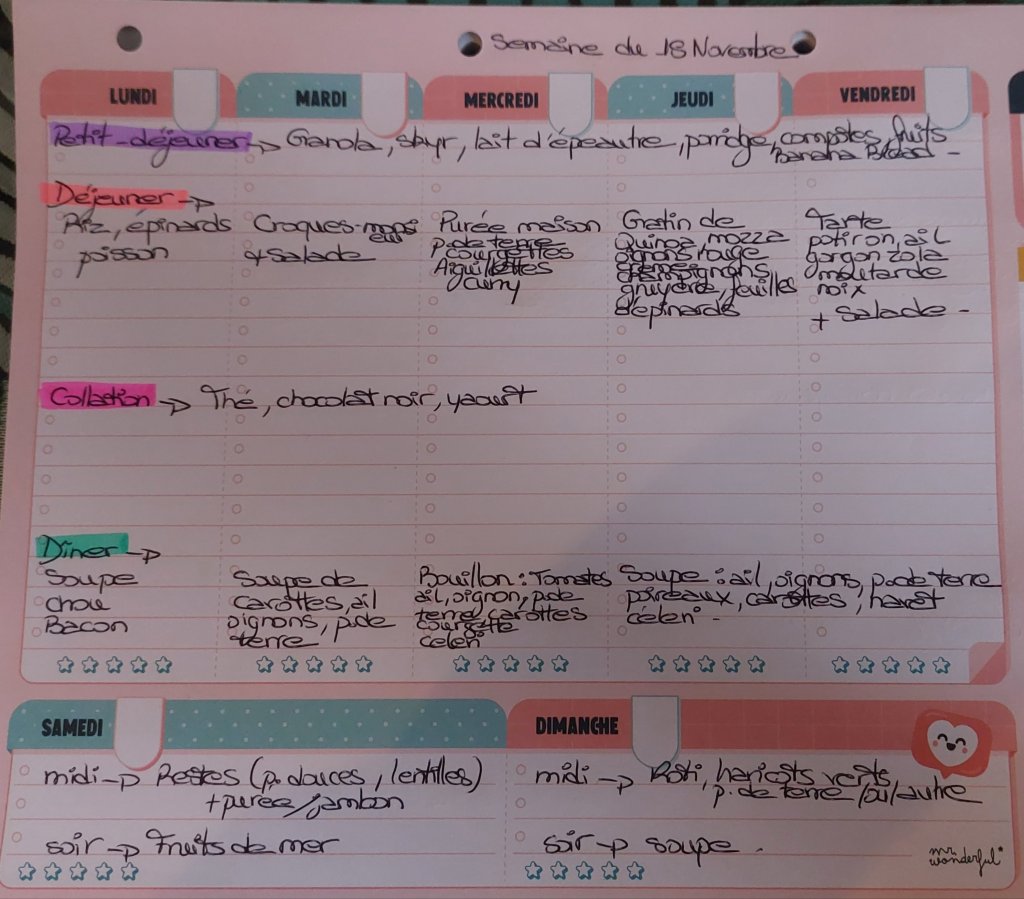 Semaine du 18 Novembre
LUNDI MARDI MERCREDI JEUDI VENDREDI
Petit-déjeuner → Granola, skyr, lait d'épeautre, porridge, compotes, fruits
Banana Bread -
Déjeuner →
Riz, épinards
poisson
Croques-monsi
eur
+ Salade
Purée maison
p. de terre
courgettes
Aiguillettes
curry
Gratin de
Quinoa, mozza
oignons rouge
champignons
gruyère, feuilles
d'épinards
Tarte
potiron, ail
gorgonzola
moutarde
noix
+ Salade -
Collation → Thé, chocolat noir, yaourt
Dîner →
Soupe
chou
Bacon
Soupe de
carottes, ail
oignons, p. de
terre
Bouillon : Tomates
ail, oignon, p. de
terre, carottes
courgette
céleri
Soupe : ail, oignons, p. de terre
poireaux, carottes, navet
céleri -
SAMEDI
midi → Restes (p. douces, lentilles)
+ purée/jambon
soir → Fruits de mer
DIMANCHE
midi → Rôti, haricots verts,
p. de terre /ou/autre
soir → soupe .
mr.
wonderful*